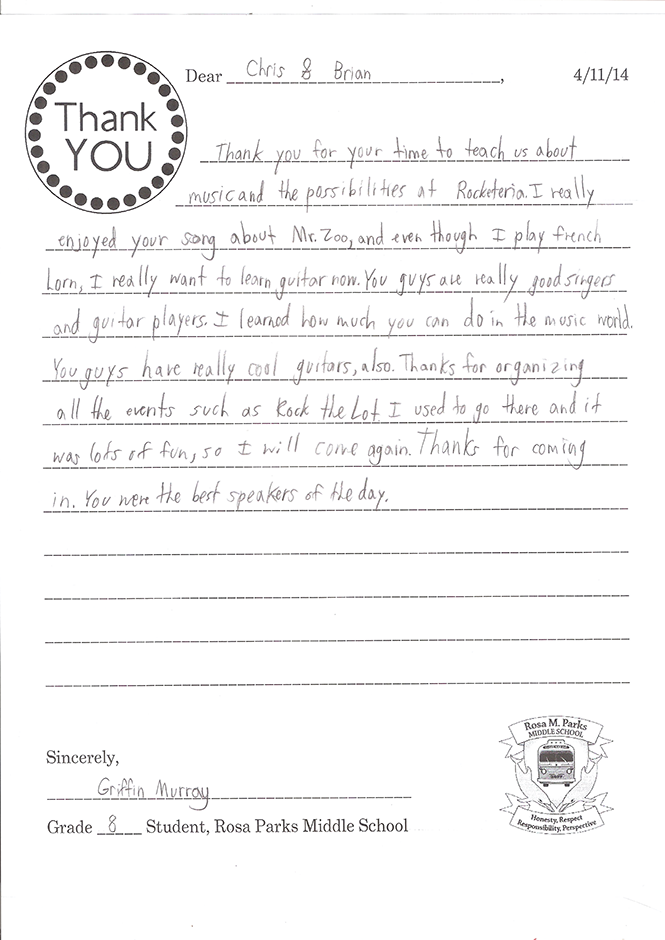 Thank
YOU
Dear Chris & Brian, 4/11/14
Thank you for your time to teach us about
music and the possibilities at Rocketeria. I really
enjoyed your song about Mr. Zoo, and even though I play french
Lorn, I really want to learn guitar now. You guys are really good singers
and guitar players. I learned how much you can do in the music world.
You guys have really cool guitars, also. Thanks for organizing
all the events such as Rock the Lot I used to go there and it
was lots of fun, so I will come again. Thanks for coming
in. You were the best speakers of the day.
Sincerely,
Griffin Murray
Grade 8 Student, Rosa Parks Middle School
Rosa M. Parks
MIDDLE SCHOOL
Honesty, Respect
Responsibility, Perspective